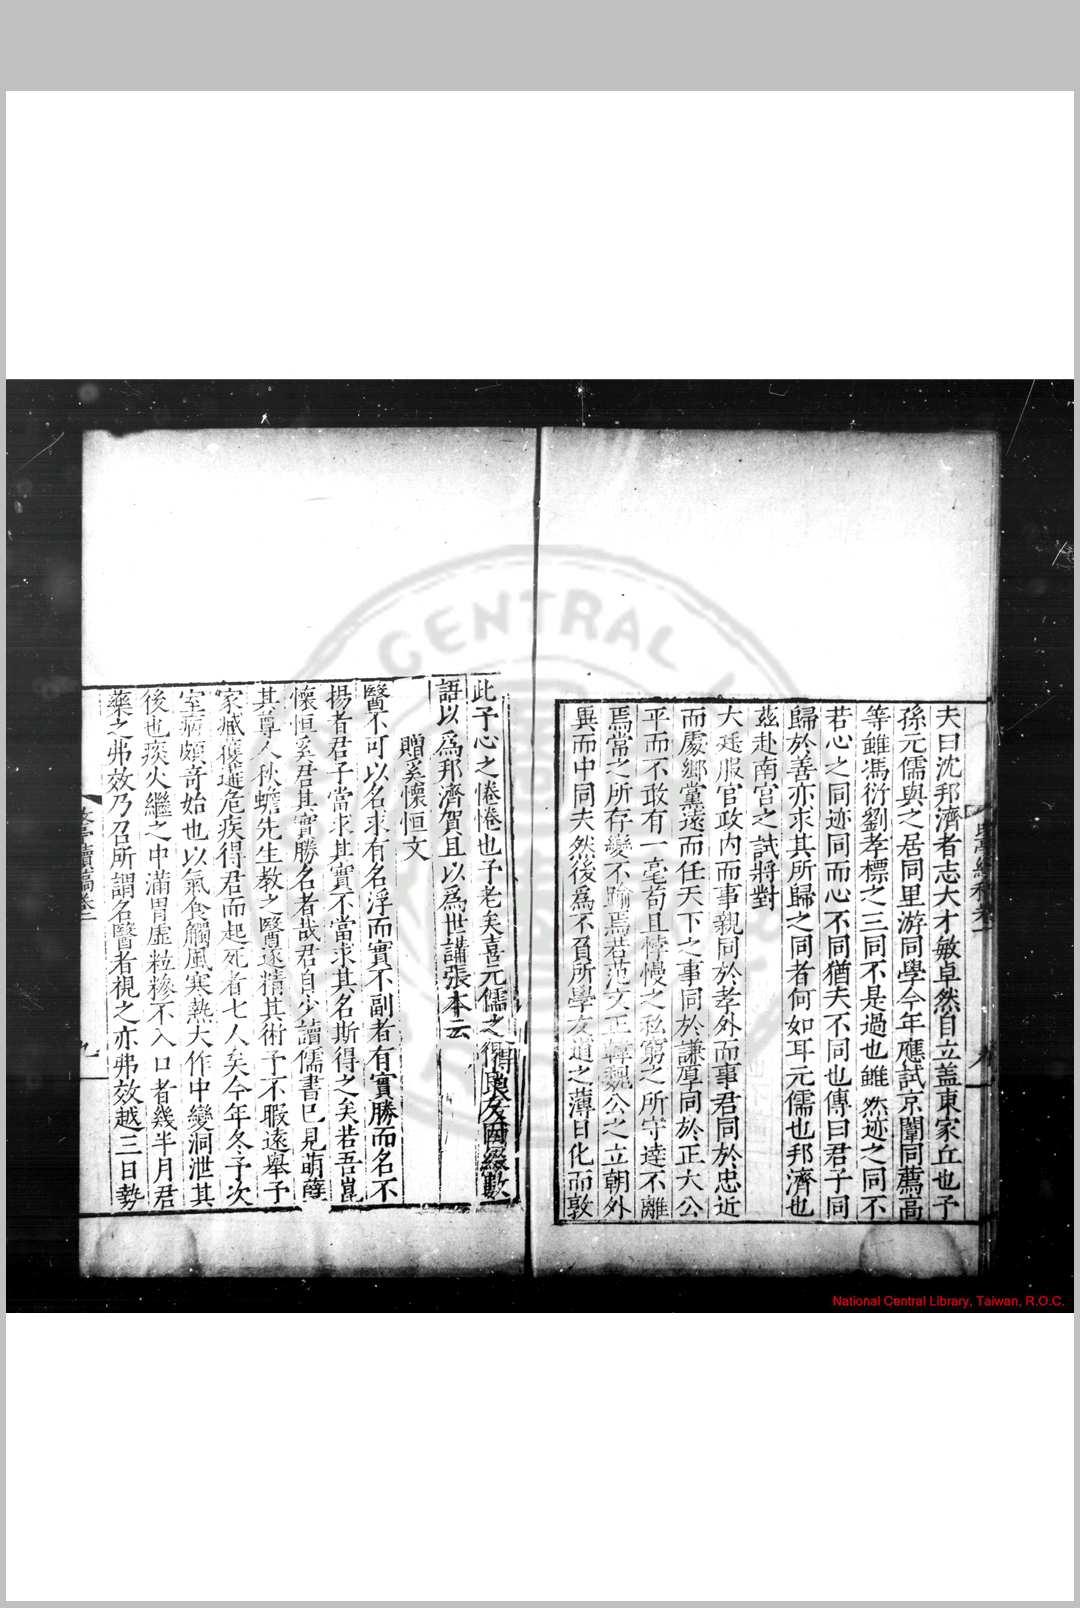 夫曰沈邦濟者志大才敏卓然自立蓋東家丘也予
孫元儒與之居同里游同學今年應試京闈同薦高
等雖馮衍劉孝標之三同不是過也雖然迹之同不
若心之同迹同而心不同猶夫不同也傳曰君子同
歸於善亦求其所歸之同者何如耳元儒也邦濟也
茲赴南宫之試將對
大廷服官政内而事親同於孝外而事君同於忠近
而處鄉黨遠而任天下之事同於謙厚同於正大公
平而不敢有一毫苟且悖慢之私窮之所守達不離
焉常之所存變不踰焉若范文正韓魏公之立朝外
異而中同夫然後爲不負所學友道之薄日化而敦
此予心之惓惓也予老矣喜元儒之得與友因綴數
語以爲邦濟賀且以爲世講張本云
贈奚懷恒文
醫不可以名求有名浮而實不副者有實勝而名不
揚者君子當求其實不當求其名斯得之矣若吾崑
懷恒奚君其實勝名者哉君自少讀儒書已見萌蘖
其尊人秋蟾先生教之醫遂精其術予不暇遠舉予
家臧獲遘危疾得君而起死者七人矣今年冬予次
室病頗奇始也以氣食觸風寒熱大作中變洞泄其
後也痰火繼之中滿胃虛粒糝不入口者幾半月君
藥之弗效乃召所謂名醫者視之亦弗效越三日勢
讀稿卷二
九
CENTRAL
National Central Library, Taiwan, R.O.C.